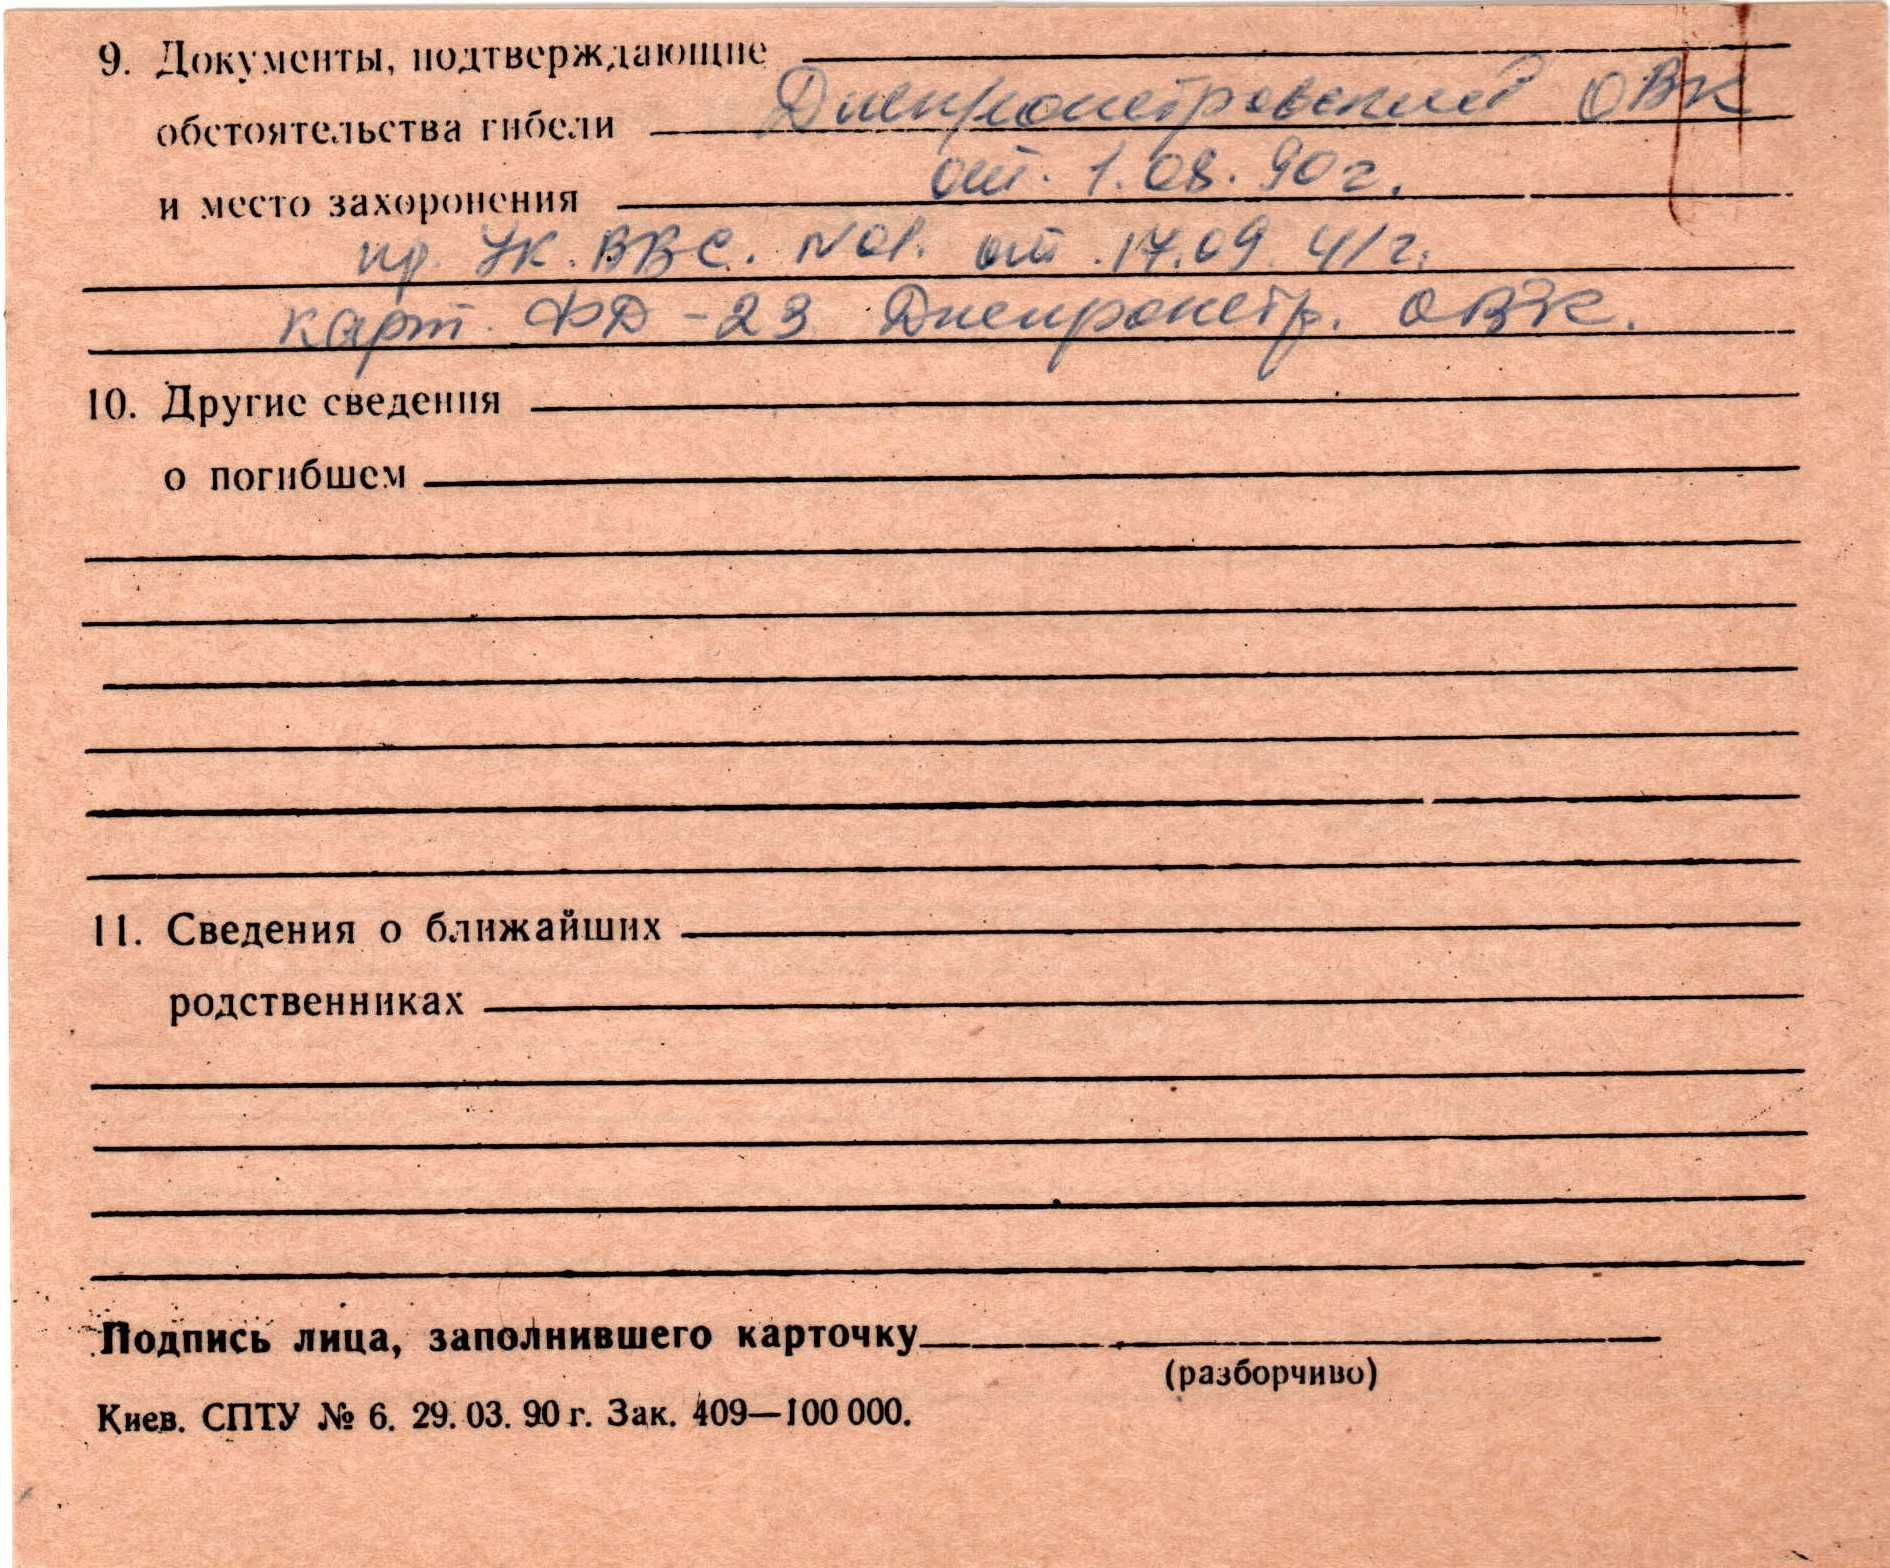 9. Документы, подтверждающие
обстоятельства гибели Днепропетровский ОВК
и место захоронения от. 1.08.90г.
пр. УК. ВВС. N01. от .17.09 41г.
карт. ФД-23 Днепропетр. ОВК.
10. Другие сведения
о погибшем
11. Сведения о ближайших
родственниках
Подпись лица, заполнившего карточку
(разборчиво)
Киев. СПТУ № 6. 29. 03. 90 г. Зак. 409—100 000.